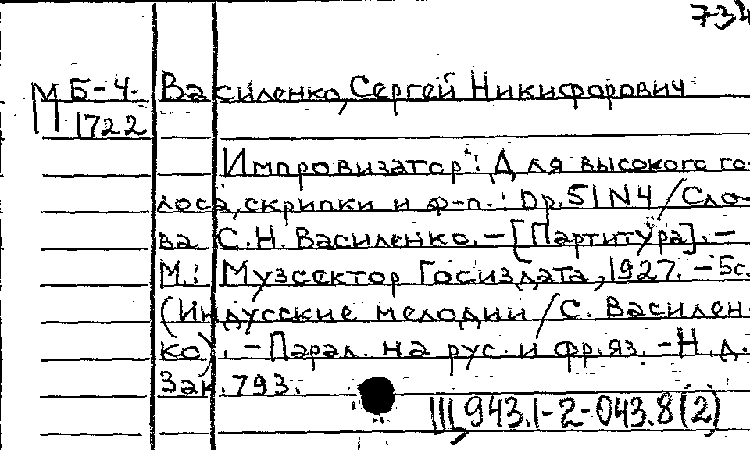 734
М Б-4. Василенко, Сергей Никифорович
1722
Импровизатор : Для высокого го-
лоса, скрипки и ф-п. : Op. 51 N 4 / Сло-
ва С. Н. Василенко. - [Партитура]. -
М.: Музсектор Госиздата, 1927. - 5с.
(Индусские мелодии / С. Василен-
ко). - Парал. на рус. и фр. яз. - Н. д.
Зак. 793.
943.1-2-043.8(2)